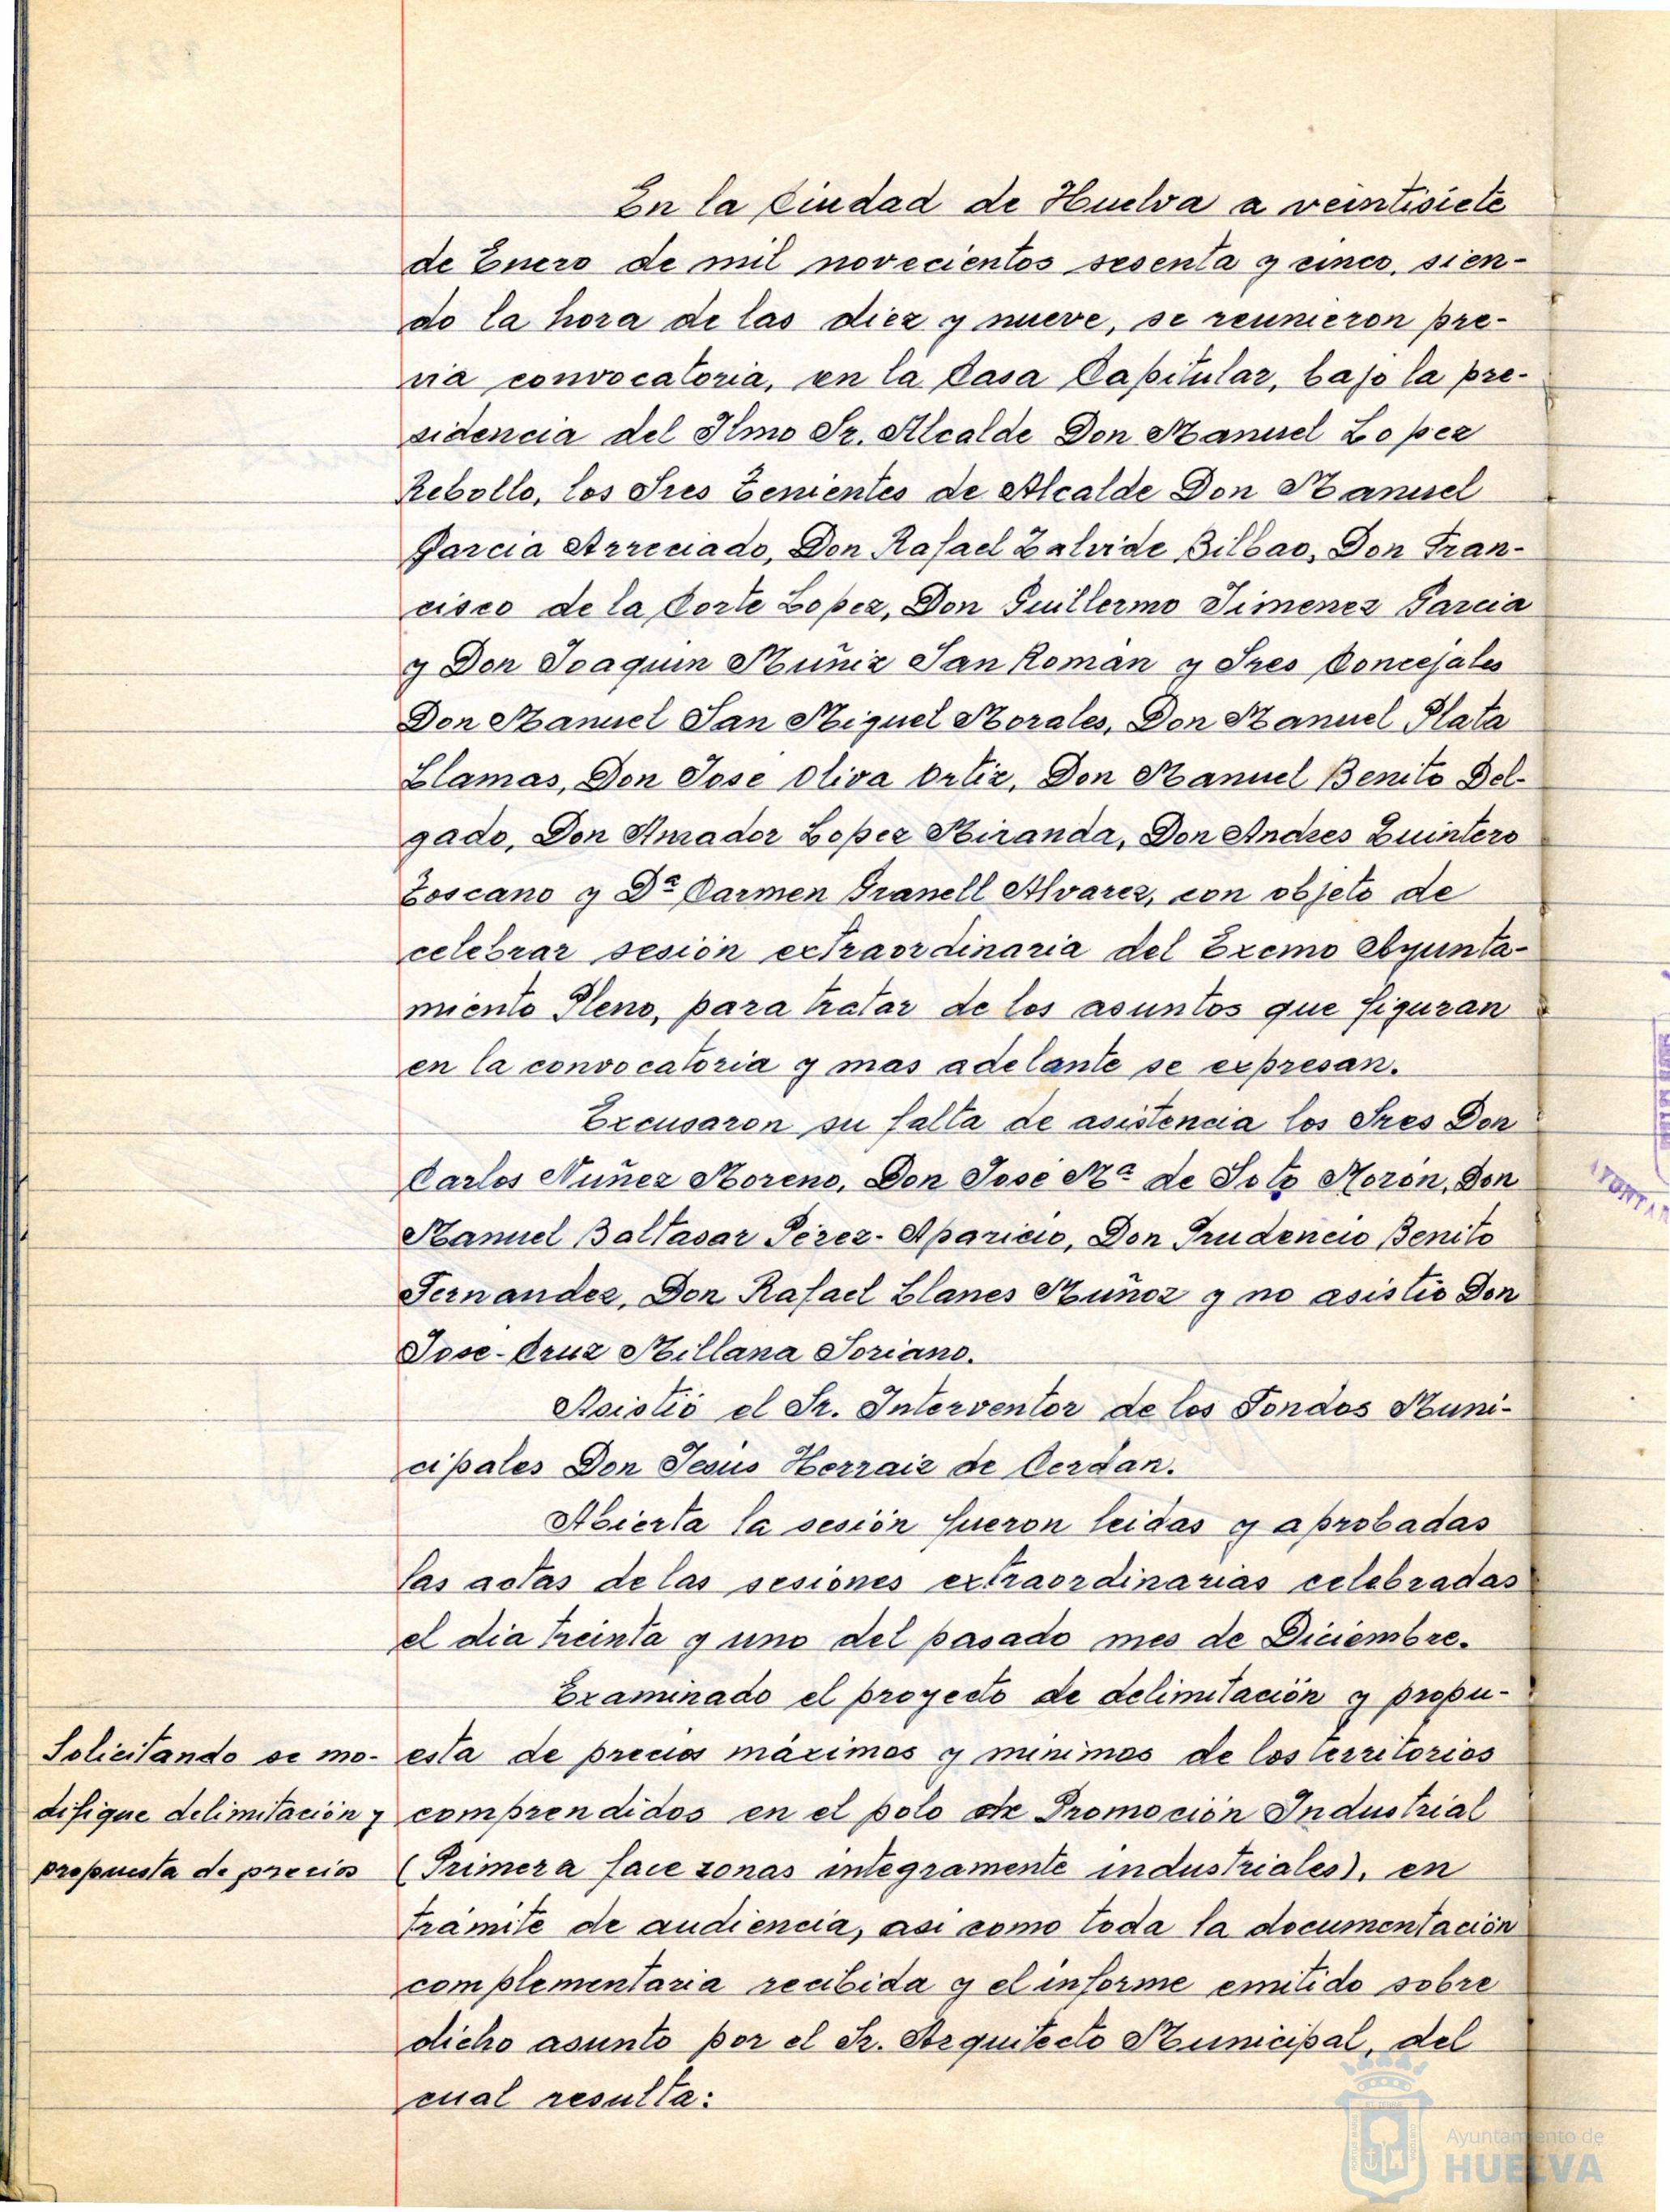 En la Ciudad de Huelva a veintisiete
de Enero de mil novecientos sesenta y cinco, sien-
do la hora de las diez y nueve, se reunieron pre-
via convocatoria, en la Casa Capitular, bajo la pre-
sidencia del Ilmo Sr. Alcalde Don Manuel Lopez
Rebollo, los Sres Tenientes de Alcalde Don Manuel
Garcia Arreciado, Don Rafael Zalvide Bilbao, Don Fran-
cisco de la Corte Lopez, Don Guillermo Jimenez Garcia
y Don Joaquin Muñiz San Román y Sres Concejales
Don Manuel San Miguel Morales, Don Manuel Plata
Llamas, Don Jose Oliva Ortiz, Don Manuel Benito Del-
gado, Don Amador Lopez Miranda, Don Andres Quintero
Toscano y Dª Carmen Granell Alvarez, con objeto de
celebrar sesión extraordinaria del Excmo Ayunta-
miento Pleno, para tratar de los asuntos que figuran
en la convocatoria y mas adelante se expresan.
Excusaron su falta de asistencia los Sres Don
Carlos Nuñez Moreno, Don Jose Mª de Soto Morón, Don
Manuel Baltasar Pérez-Aparicio, Don Prudencio Benito
Fernandez, Don Rafael Llanes Muñoz y no asistio Don
Jose-Cruz Millana Soriano.
Asistió el Sr. Interventor de los Fondos Muni-
cipales Don Jesús Herraiz de Cerdan.
Abierta la sesión fueron leidas y aprobadas
las actas de las sesiones extraordinarias celebradas
el dia treinta y uno del pasado mes de Diciembre.
Examinado el proyecto de delimitación y propu-
Solicitando se mo-
difique delimitación y
propuesta de precios
esta de precios máximos y minimos de los territorios
comprendidos en el polo de Promoción Industrial
(Primera face zonas integramente industriales), en
trámite de audiencia, asi como toda la documentación
complementaria recibida y el informe emitido sobre
dicho asunto por el Sr. Arquitecto Municipal, del
cual resulta:
Ayuntamiento de
HUELVA